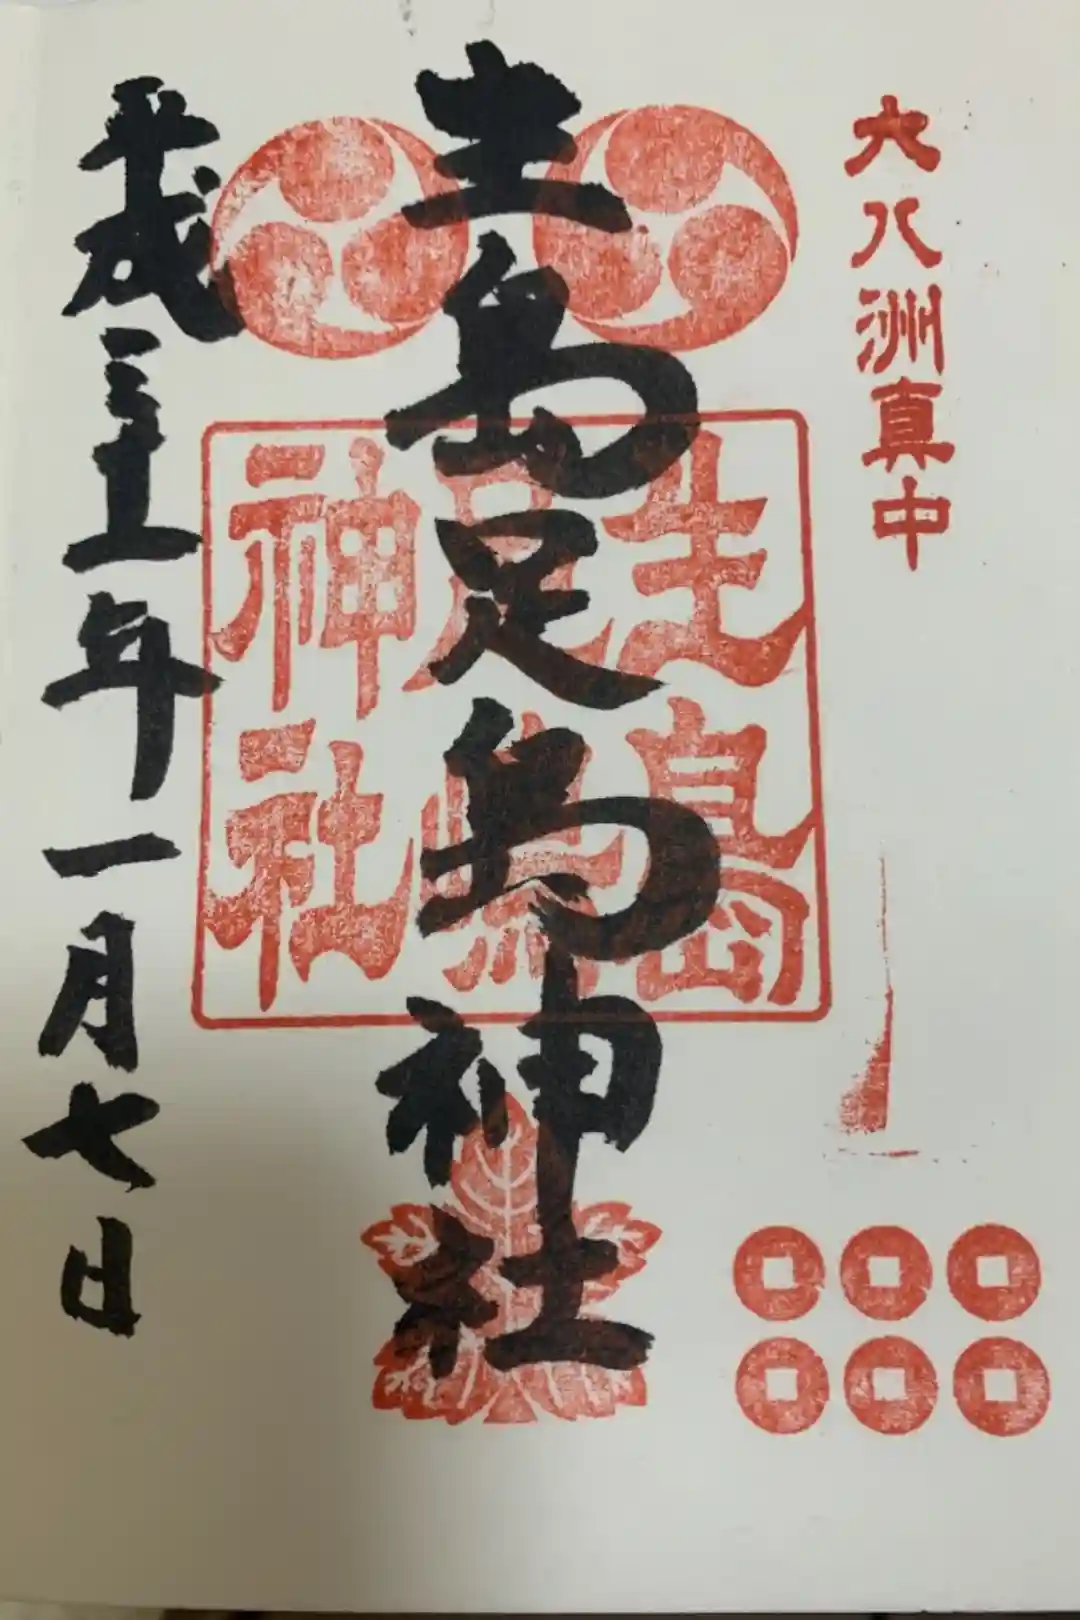 大八洲真中
生島足島神社
生島
足嶋
神社
平成三十一年一月七日